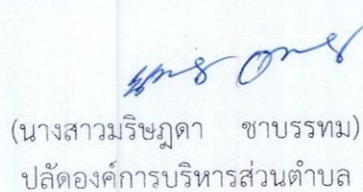 (นางสาวมริษฎดา ชาบรรทม)
ปลัดองค์การบริหารส่วนตำบล